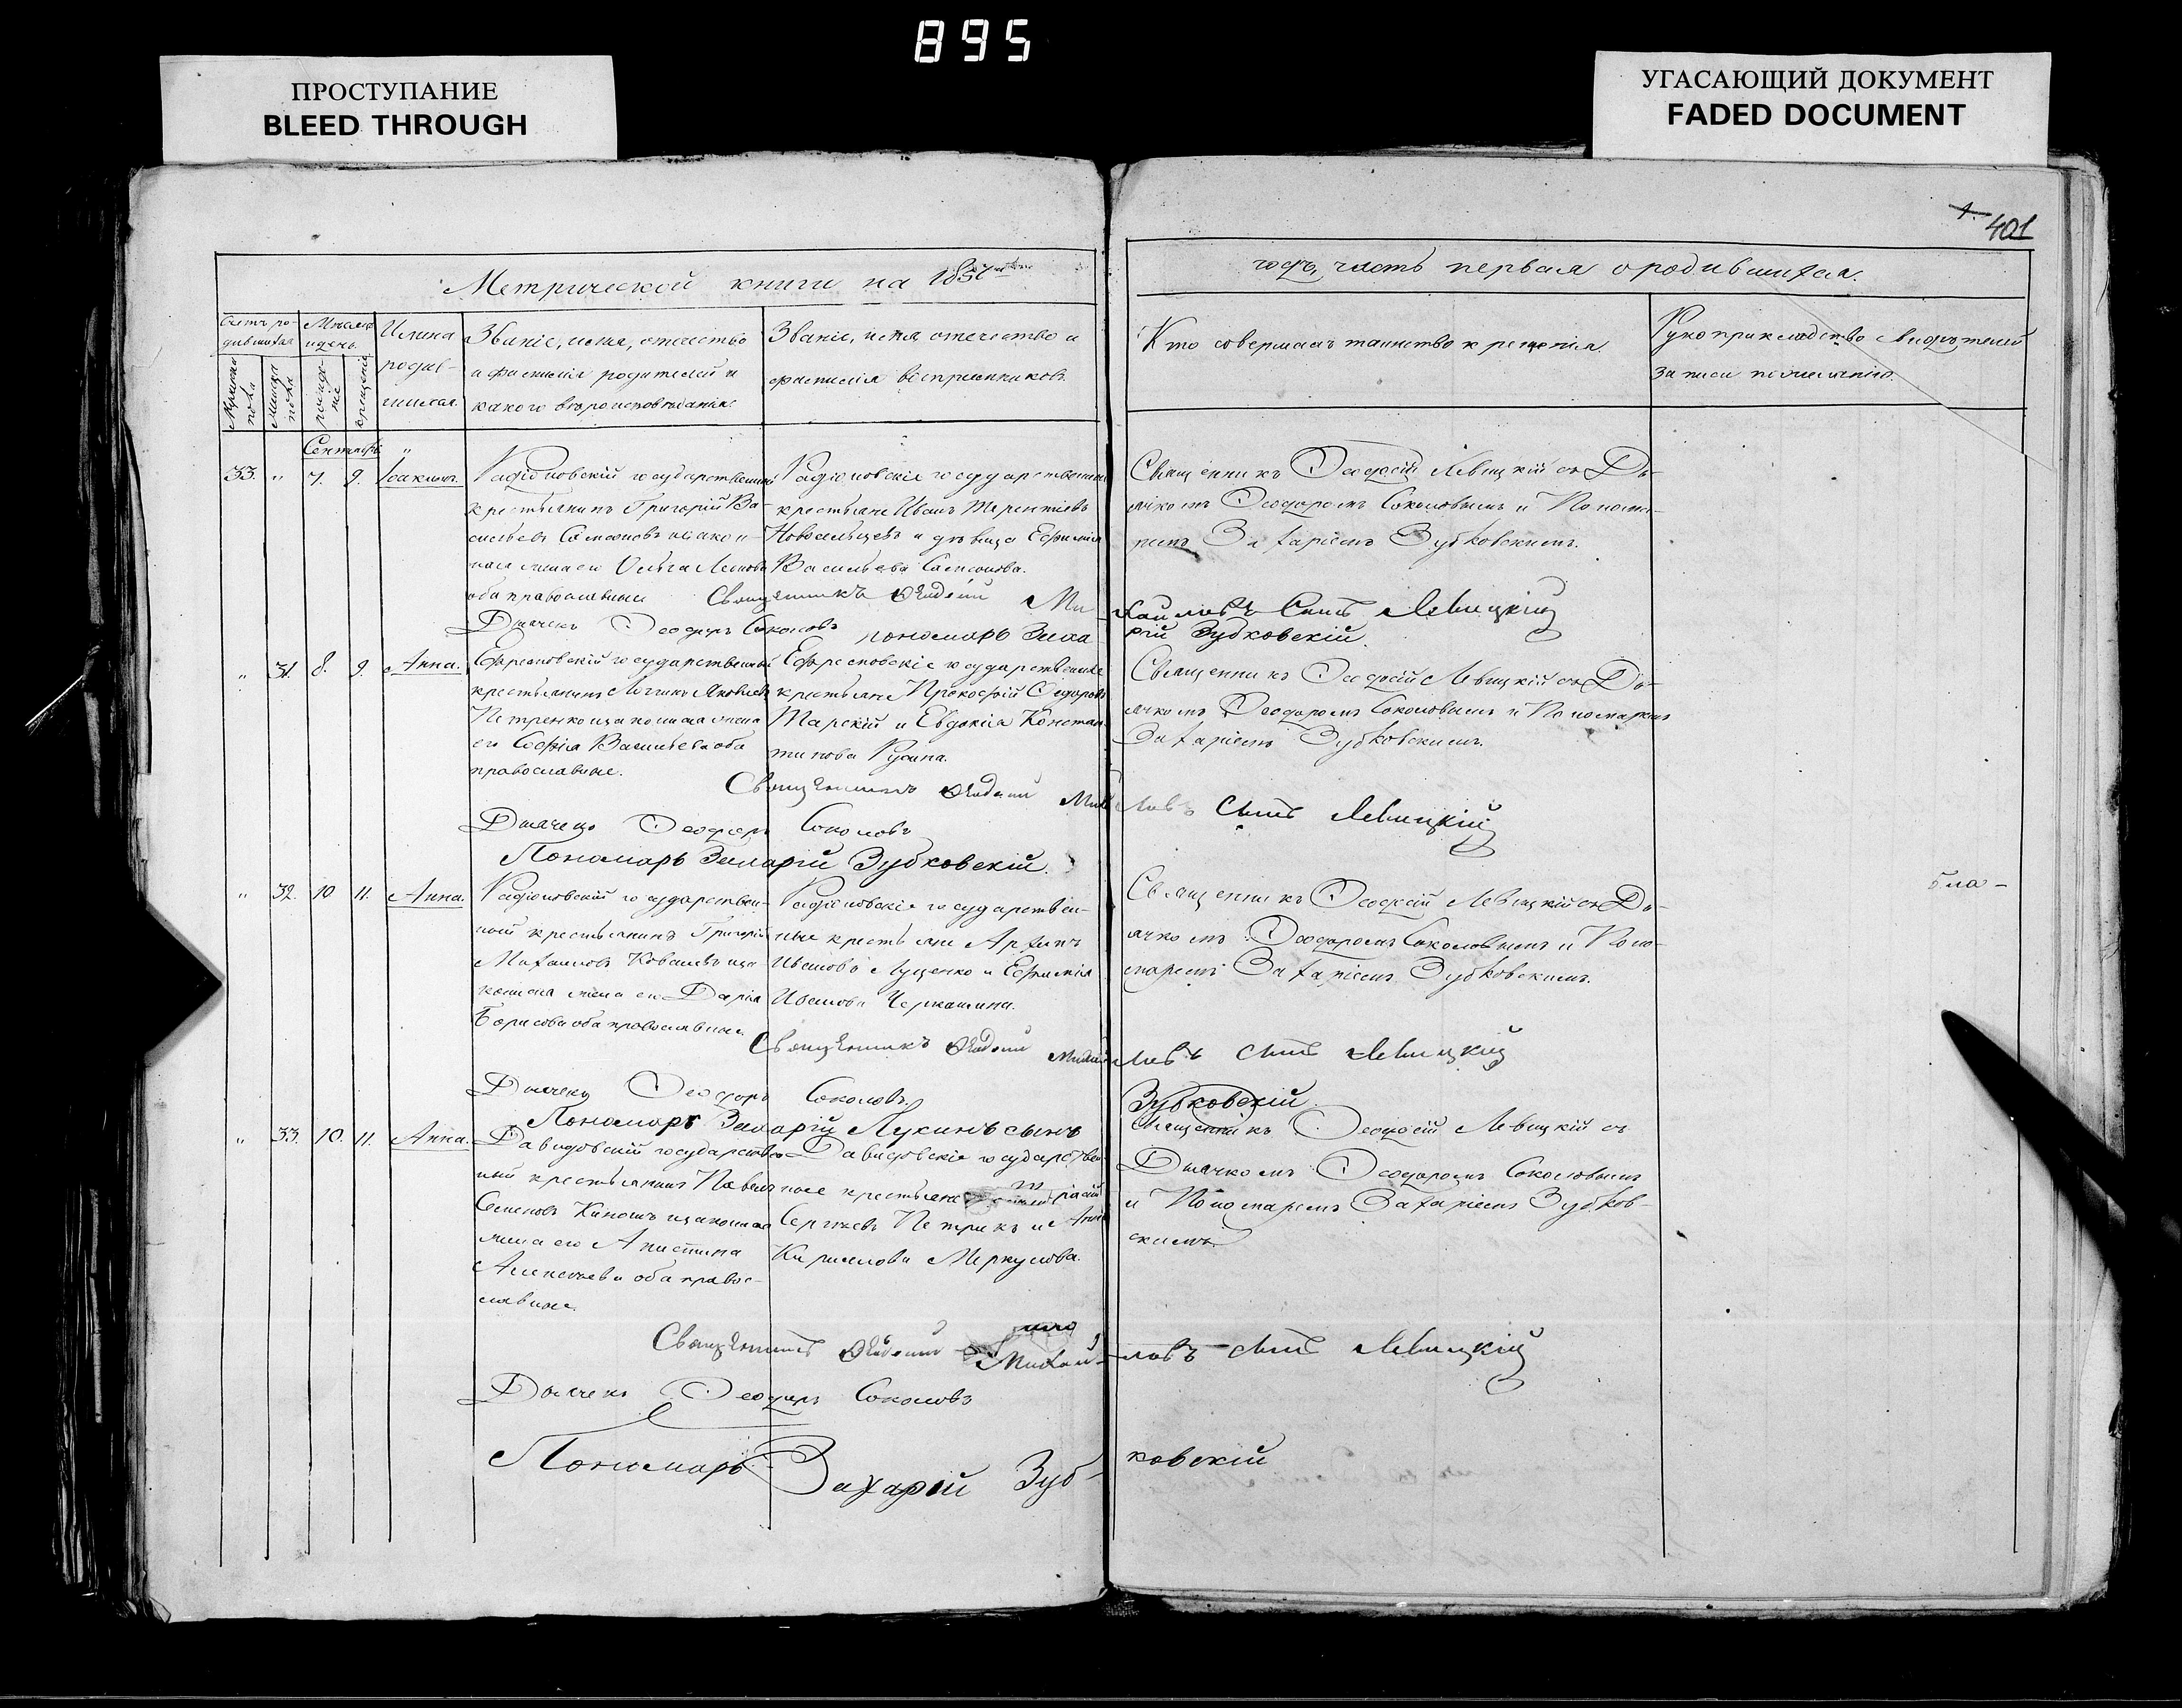 895
ПРОСТУПАНИЕ
BLEED THROUGH
УГАСАЮЩИЙ ДОКУМЕНТ
FADED DOCUMENT
401
Метрической книги на 1857
годъ, часть первая о родившихся.
Мужеска пола
Женска пола
рожденіе
крещенія
Имена родив-
шихся.
Званіе, имя, отчество
и фамилія родителей и
какого вѣроисповѣданія.
Званіе, имя, отчество и
фамилія воспріемниковъ.
Кто совершалъ таинство крещенія.
Рукоприкладство свидѣтелей
записи по желанію.
Сентябрь
33. " 7. 9. Іоакимъ.
Радіоновскій государственный
крестьянинъ Григорій Ва-
сильевъ Самсоновъ и закон-
ная жена его Ольга
оба православные
Радіоновскіе государственные
крестьяне Иванъ Терентіевъ
Новосельцевъ и дѣвица Ефимія
Васильева Самсонова.
Священникъ Ѳеодосій Левицкій съ Дь-
ячкомъ Ѳеодоромъ Соколовымъ и Понома-
ремъ Захаріемъ Зубковскимъ.
Священникъ Ѳеодосій Михайловъ сынъ Левицкій
Дьячекъ Ѳеодоръ Соколовъ пономарь Захарій Зубковскій.
" 31. 8. 9. Анна.
Ефремовскій государственный
крестьянинъ Логинъ Яковлевъ
Петренко и законная жена
его Софія Васильева оба
православные.
Ефремовскіе государственные
крестьяне Прокофій Ѳедоровъ
Тарскій и Евдокія Констан-
тинова
Священникъ Ѳеодосій Левицкій съ Дь-
ячкомъ Ѳеодоромъ Соколовымъ и Пономаремъ
Захаріемъ Зубковскимъ.
Священникъ Ѳеодосій Михайловъ сынъ Левицкій
Дьячекъ Ѳеодоръ Соколовъ
Пономарь Захарій Зубковскій.
" 32. 10. 11. Анна.
Радіоновскій государствен-
ный крестьянинъ Григорій
Михайловъ Ковалевъ и за-
конная жена его Дарія
Борисова оба православные.
Радіоновскіе государствен-
ные крестьяне Архипъ
Ивановъ Луценко и Ефимія
Иванова Черкашина.
Священникъ Ѳеодосій Левицкій съ Дь-
ячкомъ Ѳеодоромъ Соколовымъ и Поно-
маремъ Захаріемъ Зубковскимъ.
бла-
Священникъ Ѳеодосій Михайловъ сынъ Левицкій
Дьячекъ Ѳеодоръ Соколовъ.
Пономарь Захарій Лукинъ сынъ Зубковскій.
" 33. 10. 11. Анна.
Давидовскій государствен-
ный крестьянинъ Павелъ
Семеновъ и законная
жена его Анистина
Алексѣева оба право-
славные.
Давидовскіе государствен-
ные крестьяне
Сергѣевъ Петрикъ и Анна
Кириллова Меркулова.
Священникъ Ѳеодосій Левицкій съ
Дьячкомъ Ѳеодоромъ Соколовымъ
и Пономаремъ Захаріемъ Зубков-
скимъ.
Священникъ Ѳеодосій Михайловъ сынъ Левицкій
Дьячекъ Ѳеодоръ Соколовъ
Пономарь Захарій Зубковскій